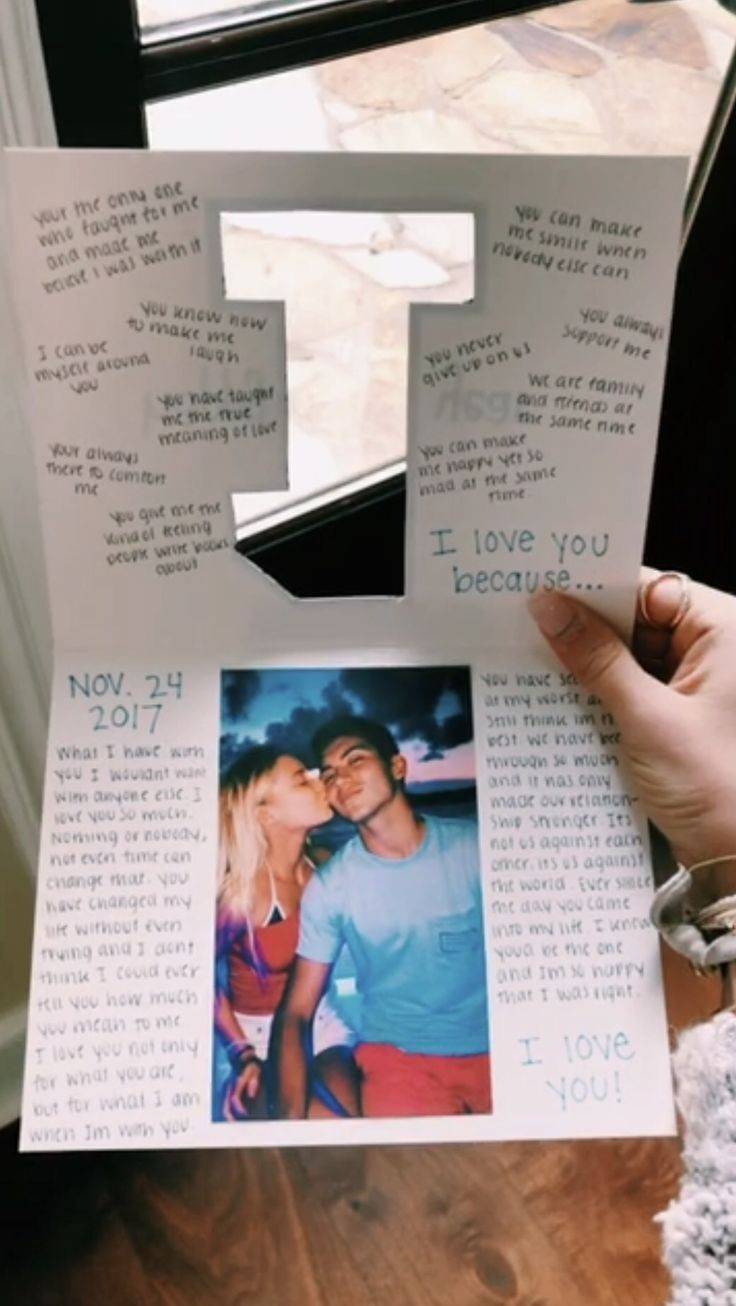 your the only one
who faught for me
and made me
believe I was worth it
You know how
to make me
laugh
I can be
myself around
you
You have taught
me the true
meaning of love
Your always
there to comfort
me
You give me the
kind of feeling
people write books
about
you can make
me smile when
nobody else can
you always
support me
you never
give up on us
we are family
and friends at
the same time
you can make
me happy yet so
mad at the same
time.
I love you
because...
NOV. 24
2017
What I have with
you I wouldnt want
with anyone else. I
love you so much.
Nothing or nobody,
not even time can
change that. You
have changed my
life without even
trying and I dont
think I could ever
tell you how much
you mean to me.
I love you not only
for what you are,
but for what I am
when Im with you.
You have
at my worst
still think im
best. We have
through so much
and it has only
made our relation-
ship stronger Its
not us against each
other, its us against
the world. Ever since
the day you came
into my life, I knew
youd be the one
and Im so happy
that I was right.
I love
you!